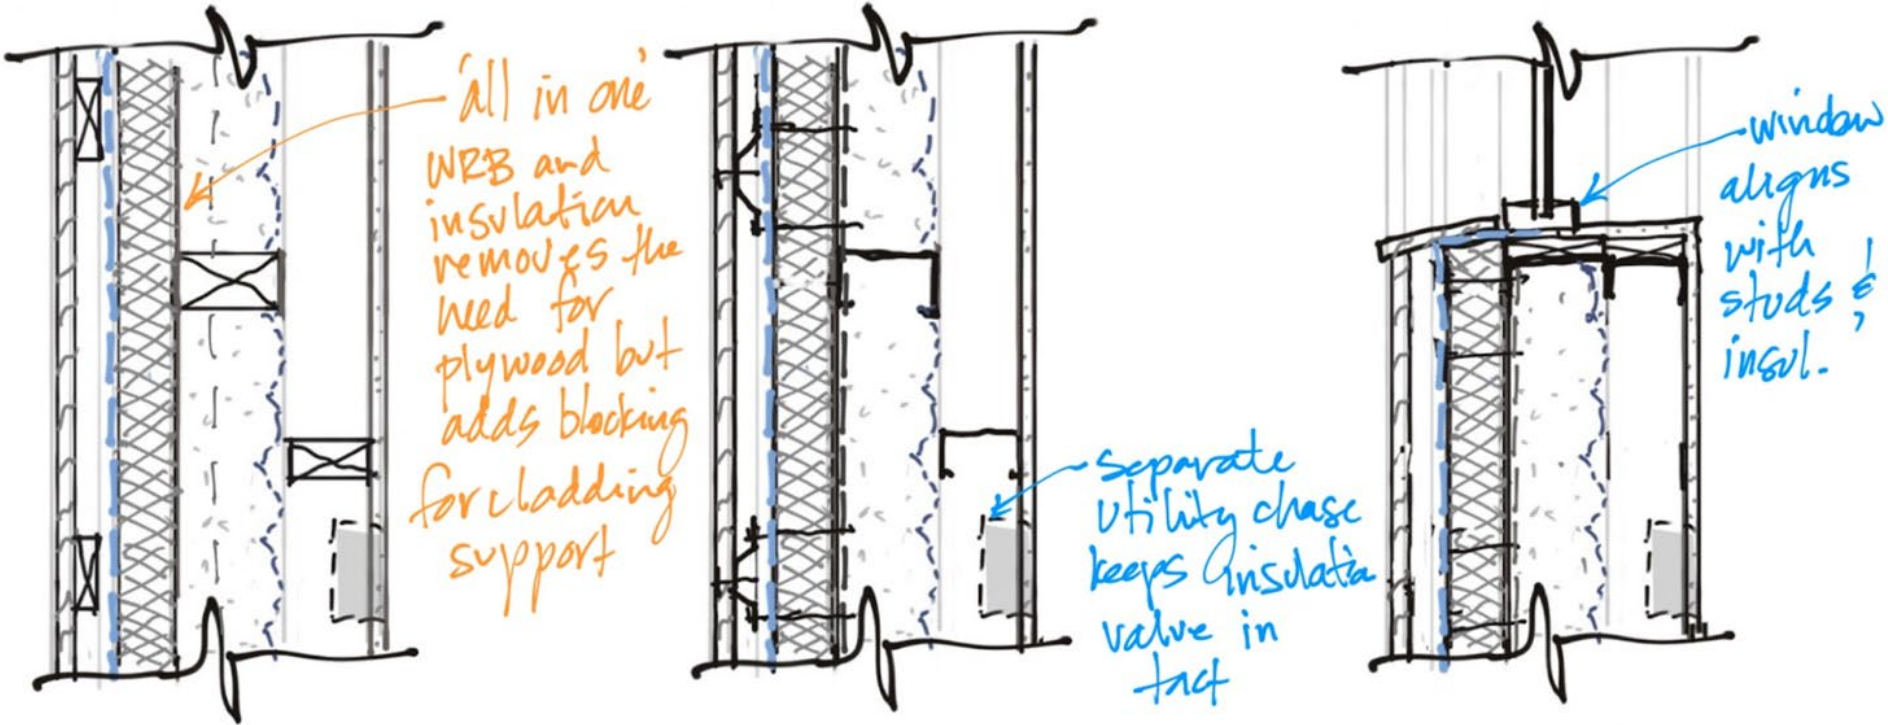 'all in one'
WRB and
insulation
removes the
need for
plywood but
adds blocking
for cladding
support
separate
utility chase
keeps insulatio
value in
tact
window
aligns
with
studs &
insul.